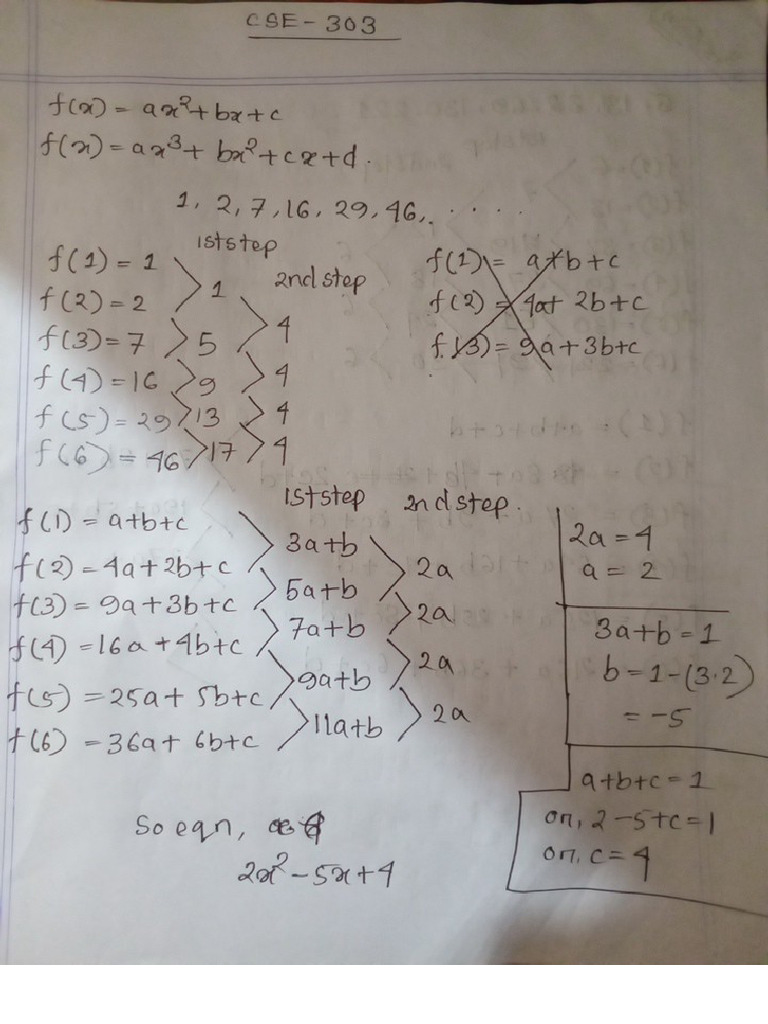 CSE - 303
f(x) = ax² + bx + c
f(x) = ax³ + bx² + cx + d.
1, 2, 7, 16, 29, 46, . . . . .
1st step
2nd step
f(1) = 1
f(2) = 2
f(3) = 7
f(4) = 16
f(5) = 29
f(6) = 46
1
5
9
13
17
4
4
4
4
f(1) = a+b+c
f(2) = 4a+ 2b+c
f(3) = 9a+3b+c
1st step
2nd step.
f(1) = a+b+c
f(2) = 4a+2b+c
f(3) = 9a+3b+c
f(4) = 16a+4b+c
f(5) = 25a+ 5b+c
f(6) = 36a+ 6b+c
3a+b
5a+b
7a+b
9a+b
11a+b
2a
2a
2a
2a
2a = 4
a = 2
3a+b = 1
b = 1-(3·2)
= -5
a+b+c = 1
or, 2-5+c=1
or, c = 4
So eqn,
2x² - 5x + 4